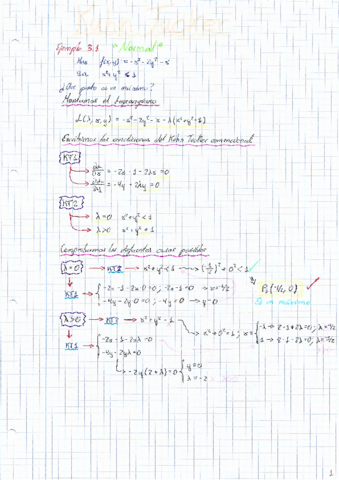 Kuhn Tucker
Ejemplo 3.1 "Normal"
Max f(x,y) = -x²-2y²-x
S.a. x²+y² ≤ 1
¿Qué punto es un máximo?
Montamos el lagrangiano
L(λ,x,y) = -x²-2y²-x-λ(x²+y²-1)
Escribimos las condiciones del Kuhn Tucker
KT1
= -2x-1-2λx = 0
= -4y-2λy = 0
KT2
λ=0 x²+y²<1
λ>0 x²+y²=1
Comprobamos los diferentes casos posibles
λ=0 → KT2 → x²+y²<1 → (-½)²+0²<1 ✓
KT1 -2x-1-2x·0=0; -2x-1=0 → x=-1/2
-4y-2y·0=0; -4y=0 → y=0
P₁(-1/2, 0) ✓
Es un máximo
λ>0 → KT2 → x²+y²=1 → x²+0²=1; x=
-1 → 2-1+2λ=0; λ=-1/2
KT1 -2x-1-2λx=0
-4y-2yλ=0
-2y(2+λ)=0 y=0
λ=-2
1